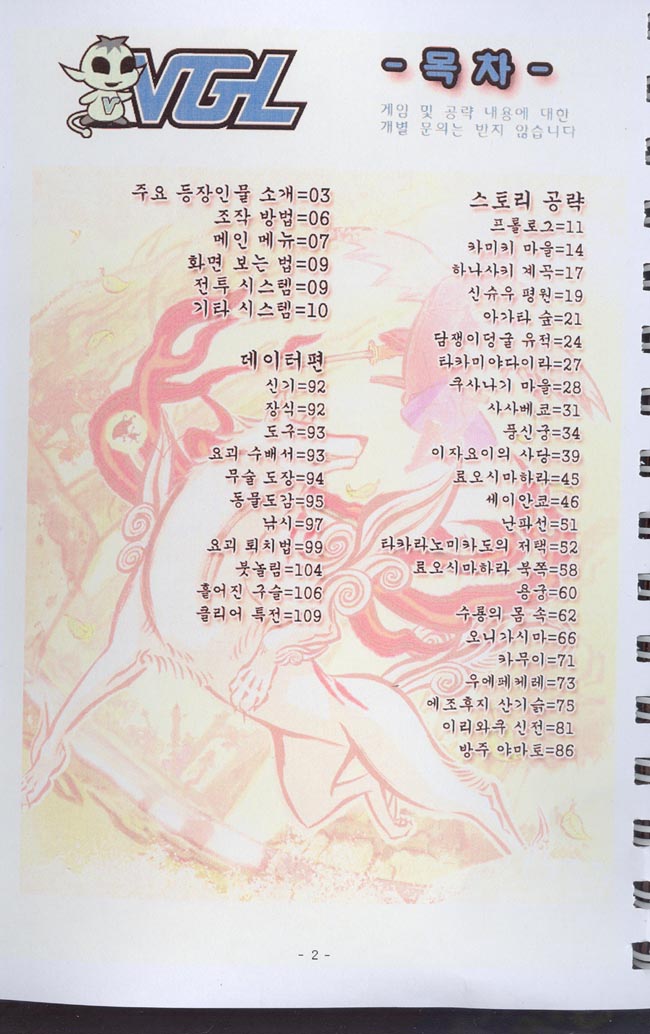 VGL
- 목차 -
게임 및 공략 내용에 대한
개별 문의는 받지 않습니다
주요 등장인물 소개=03
조작 방법=06
메인 메뉴=07
화면 보는 법=09
전투 시스템=09
기타 시스템=10
데이터편
신기=92
장식=92
도구=93
요괴 수배서=93
무술 도장=94
동물도감=95
낚시=97
요괴 퇴치법=99
붓놀림=104
흩어진 구슬=106
클리어 특전=109
스토리 공략
프롤로그=11
카미키 마을=14
하나사키 계곡=17
신슈우 평원=19
아가타 숲=21
담쟁이덩굴 유적=24
타카미야다이라=27
쿠사나기 마을=28
사사베쿄=31
풍신궁=34
이자요이의 사당=39
료오시마하라=45
세이안쿄=46
난파선=51
타카라노미카도의 저택=52
료오시마하라 북쪽=58
용궁=60
수룡의 몸 속=62
오니가시마=66
카무이=71
우에페케레=73
에조후지 산기슭=75
이리와쿠 신전=81
방주 야마토=86
- 2 -